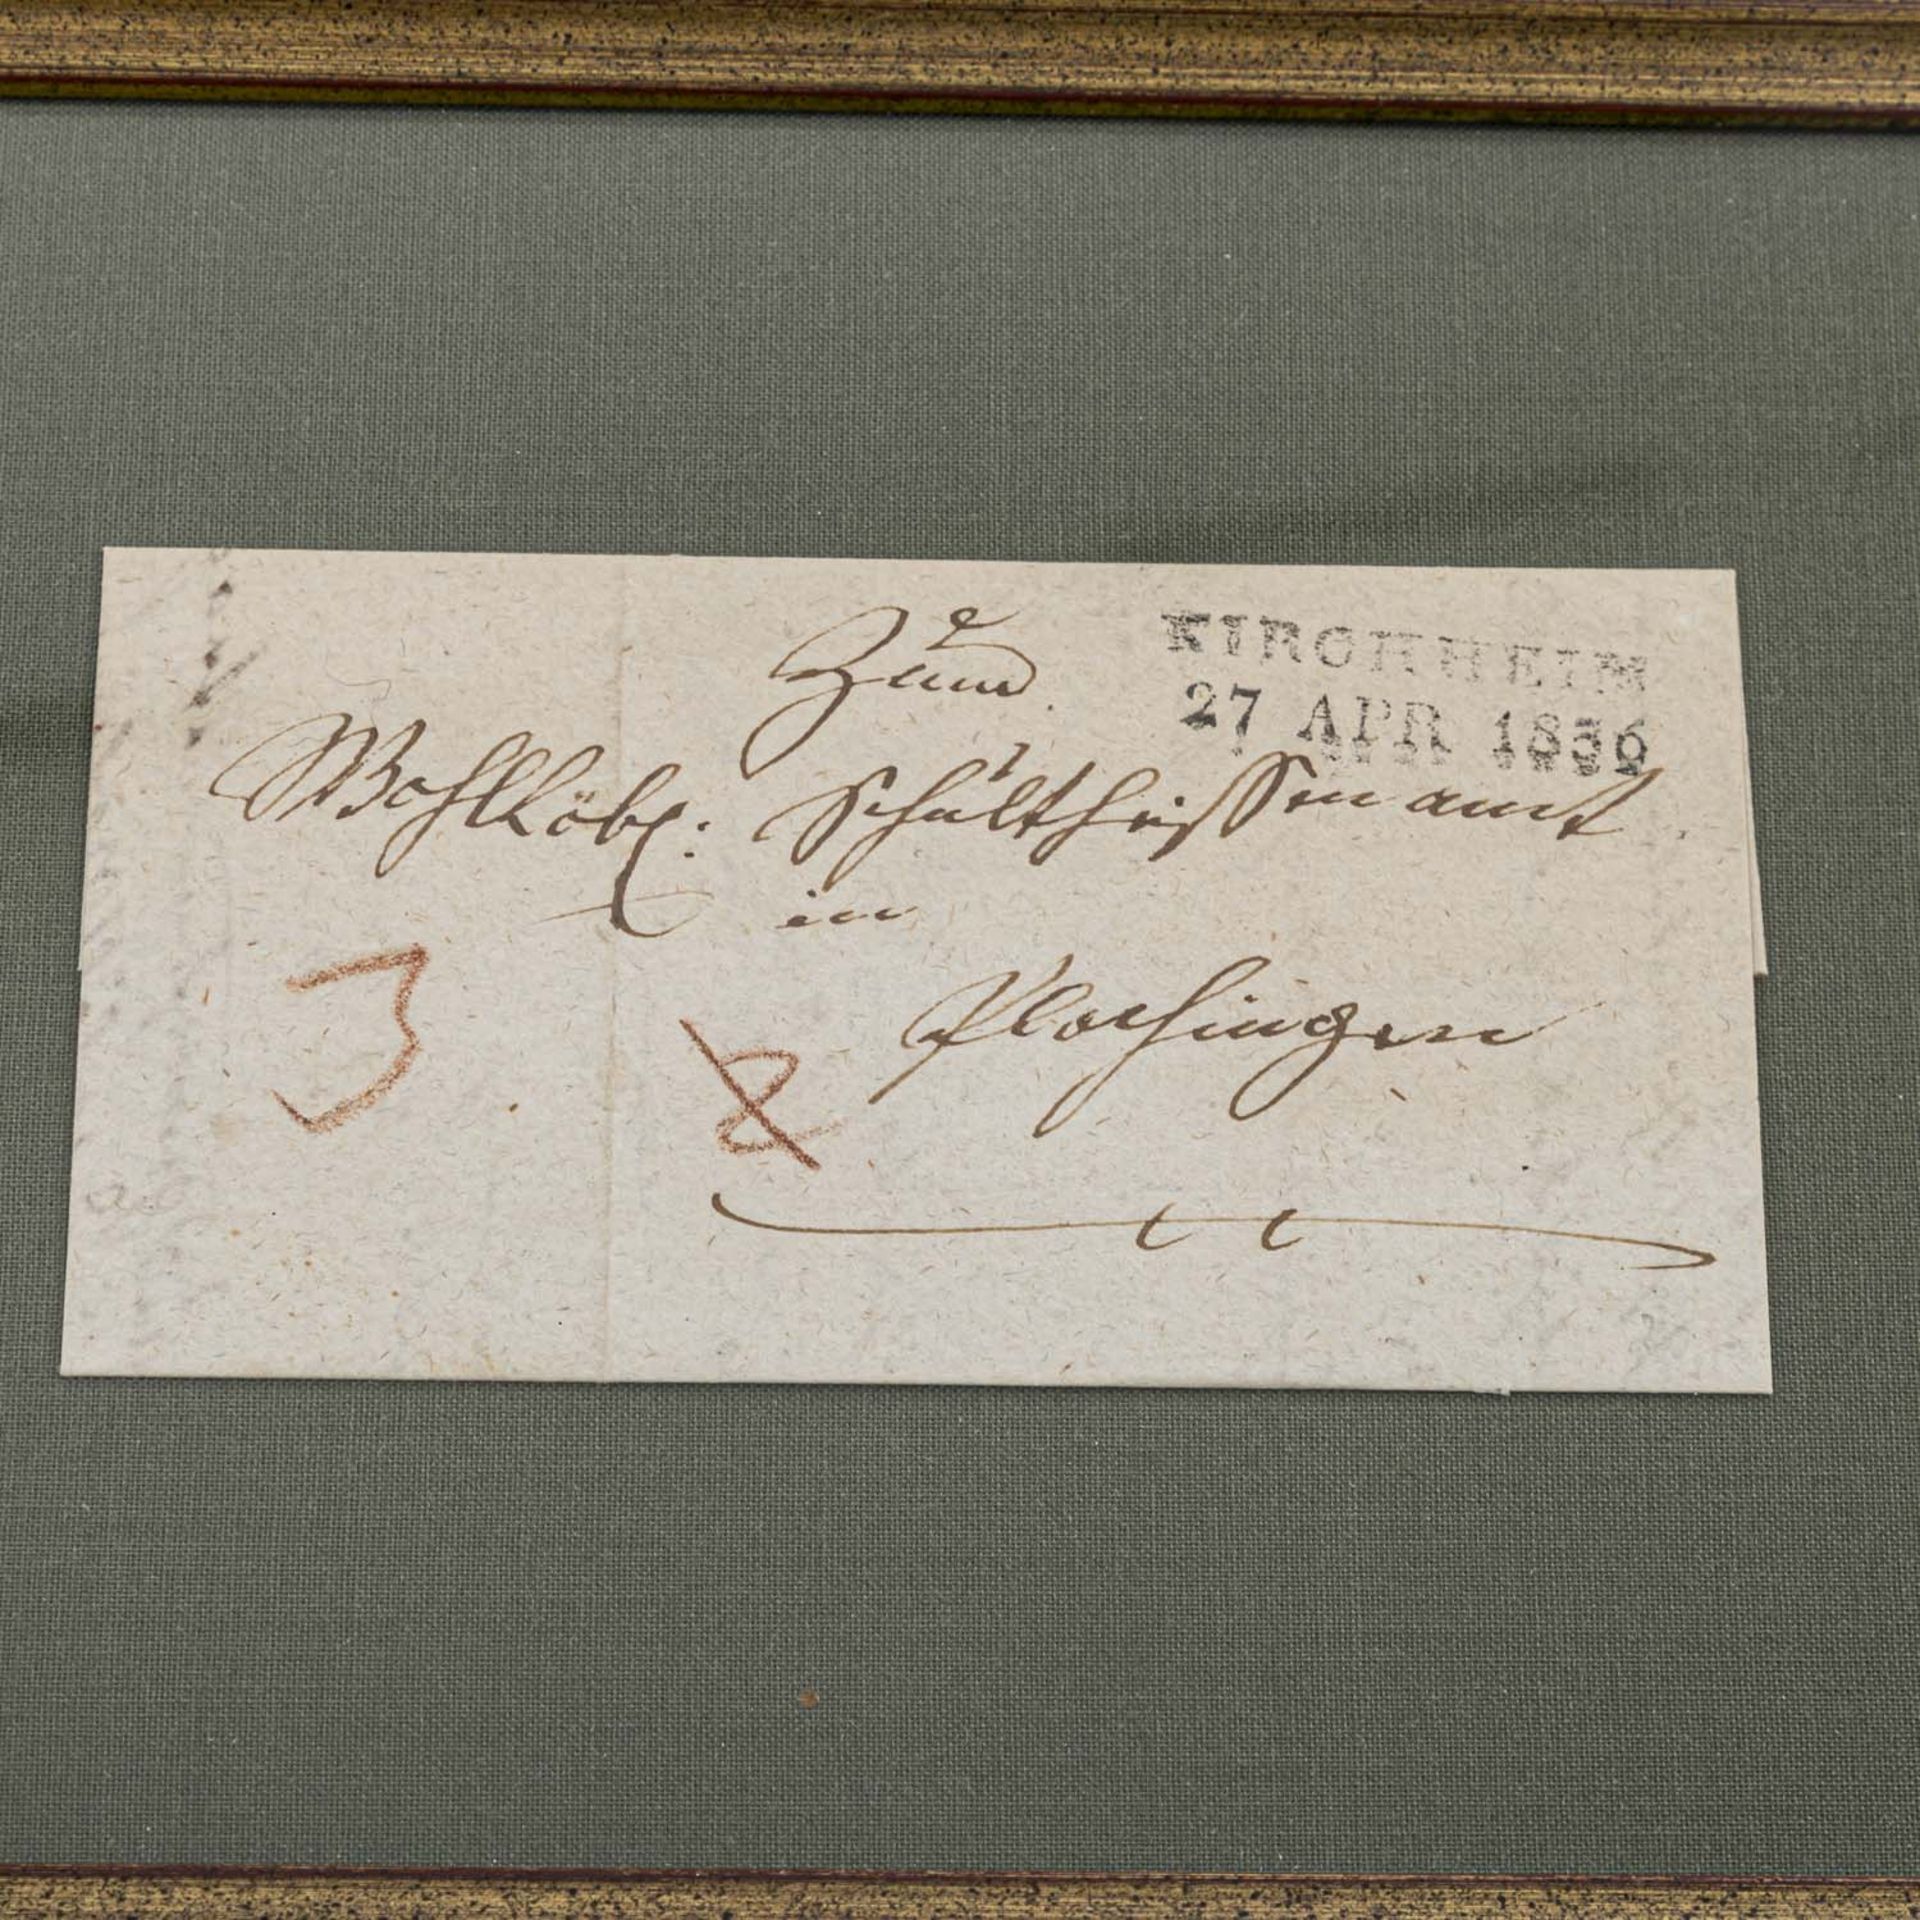 KIRCHHEIM
27 APR 1836
Zum
Wohllöbl: Schultheißenamt
in
Plochingen
3